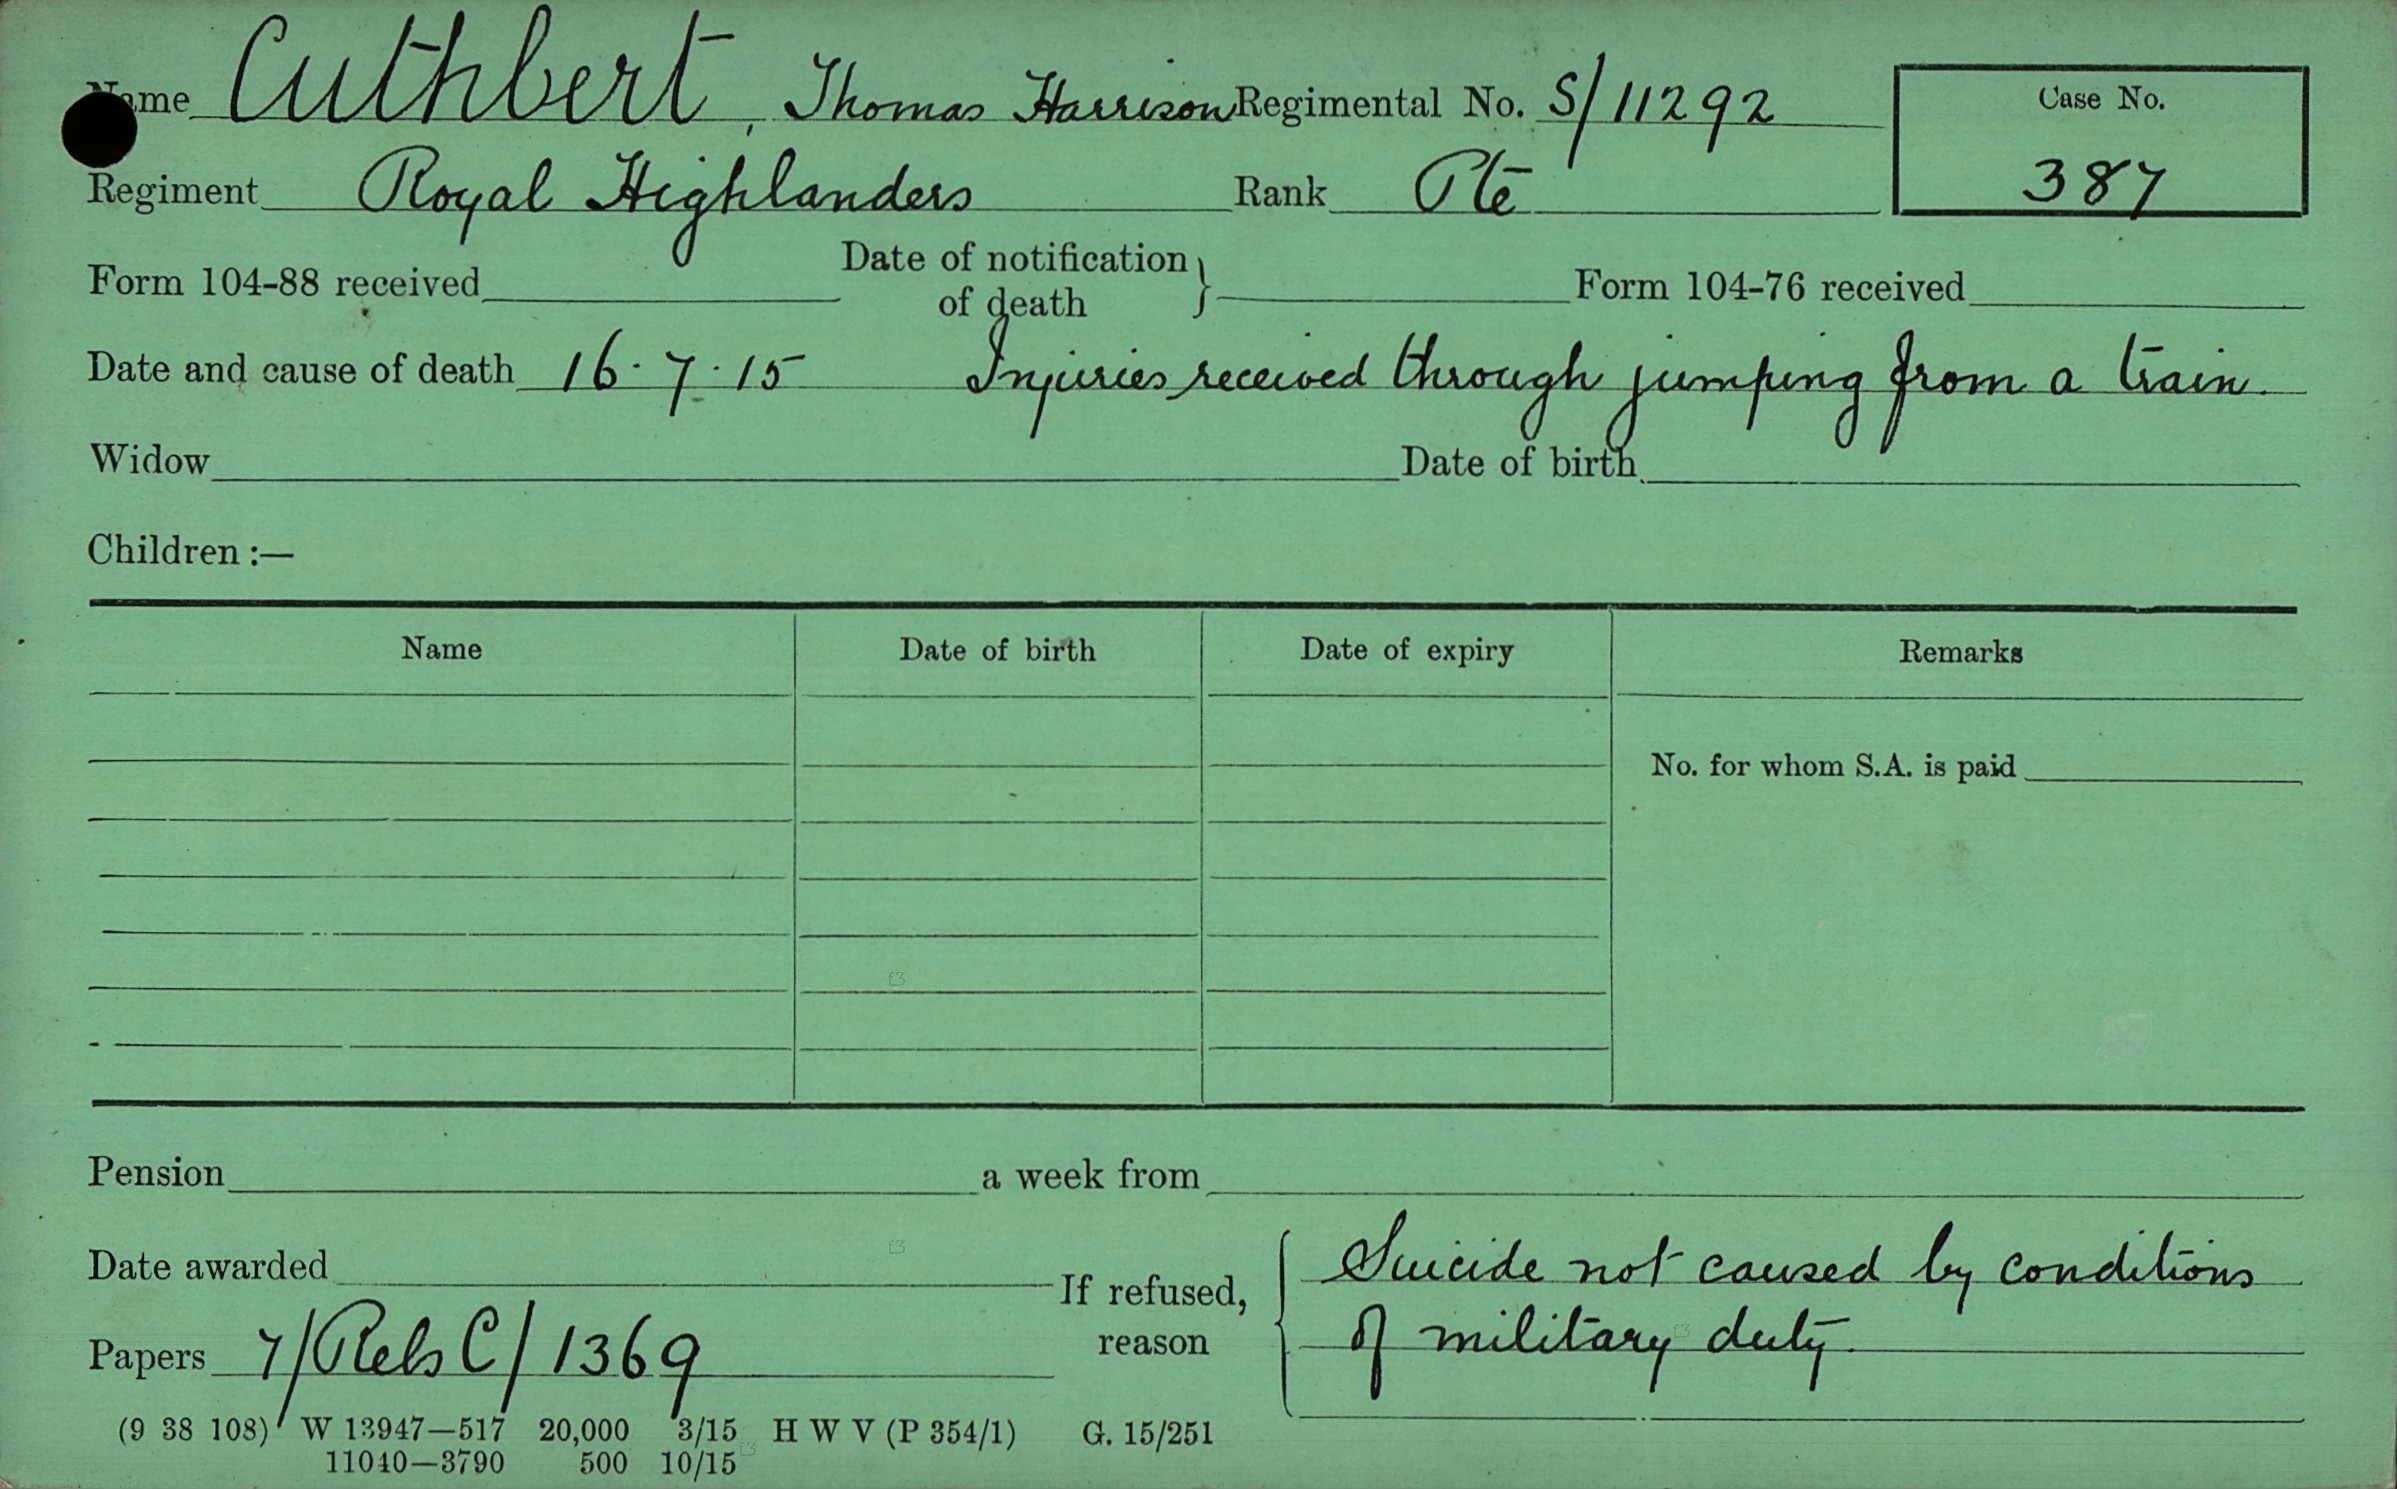 Name Cuthbert, Thomas Harrison Regimental No. S/11292 Case No.
387
Regiment Royal Highlanders Rank Pte
Form 104-88 received Date of notification of death } Form 104-76 received
Date and cause of death 16.7.15 Injuries received through jumping from a train.
Widow Date of birth
Children :—
Name Date of birth Date of expiry Remarks
No. for whom S.A. is paid
Pension a week from
Date awarded If refused, reason { Suicide not caused by conditions
of military duty.
Papers 7/Rels C/1369
(9 38 108) W 13947—517 20,000 3/15 H W V (P 354/1) G. 15/251
11040—3790 500 10/15